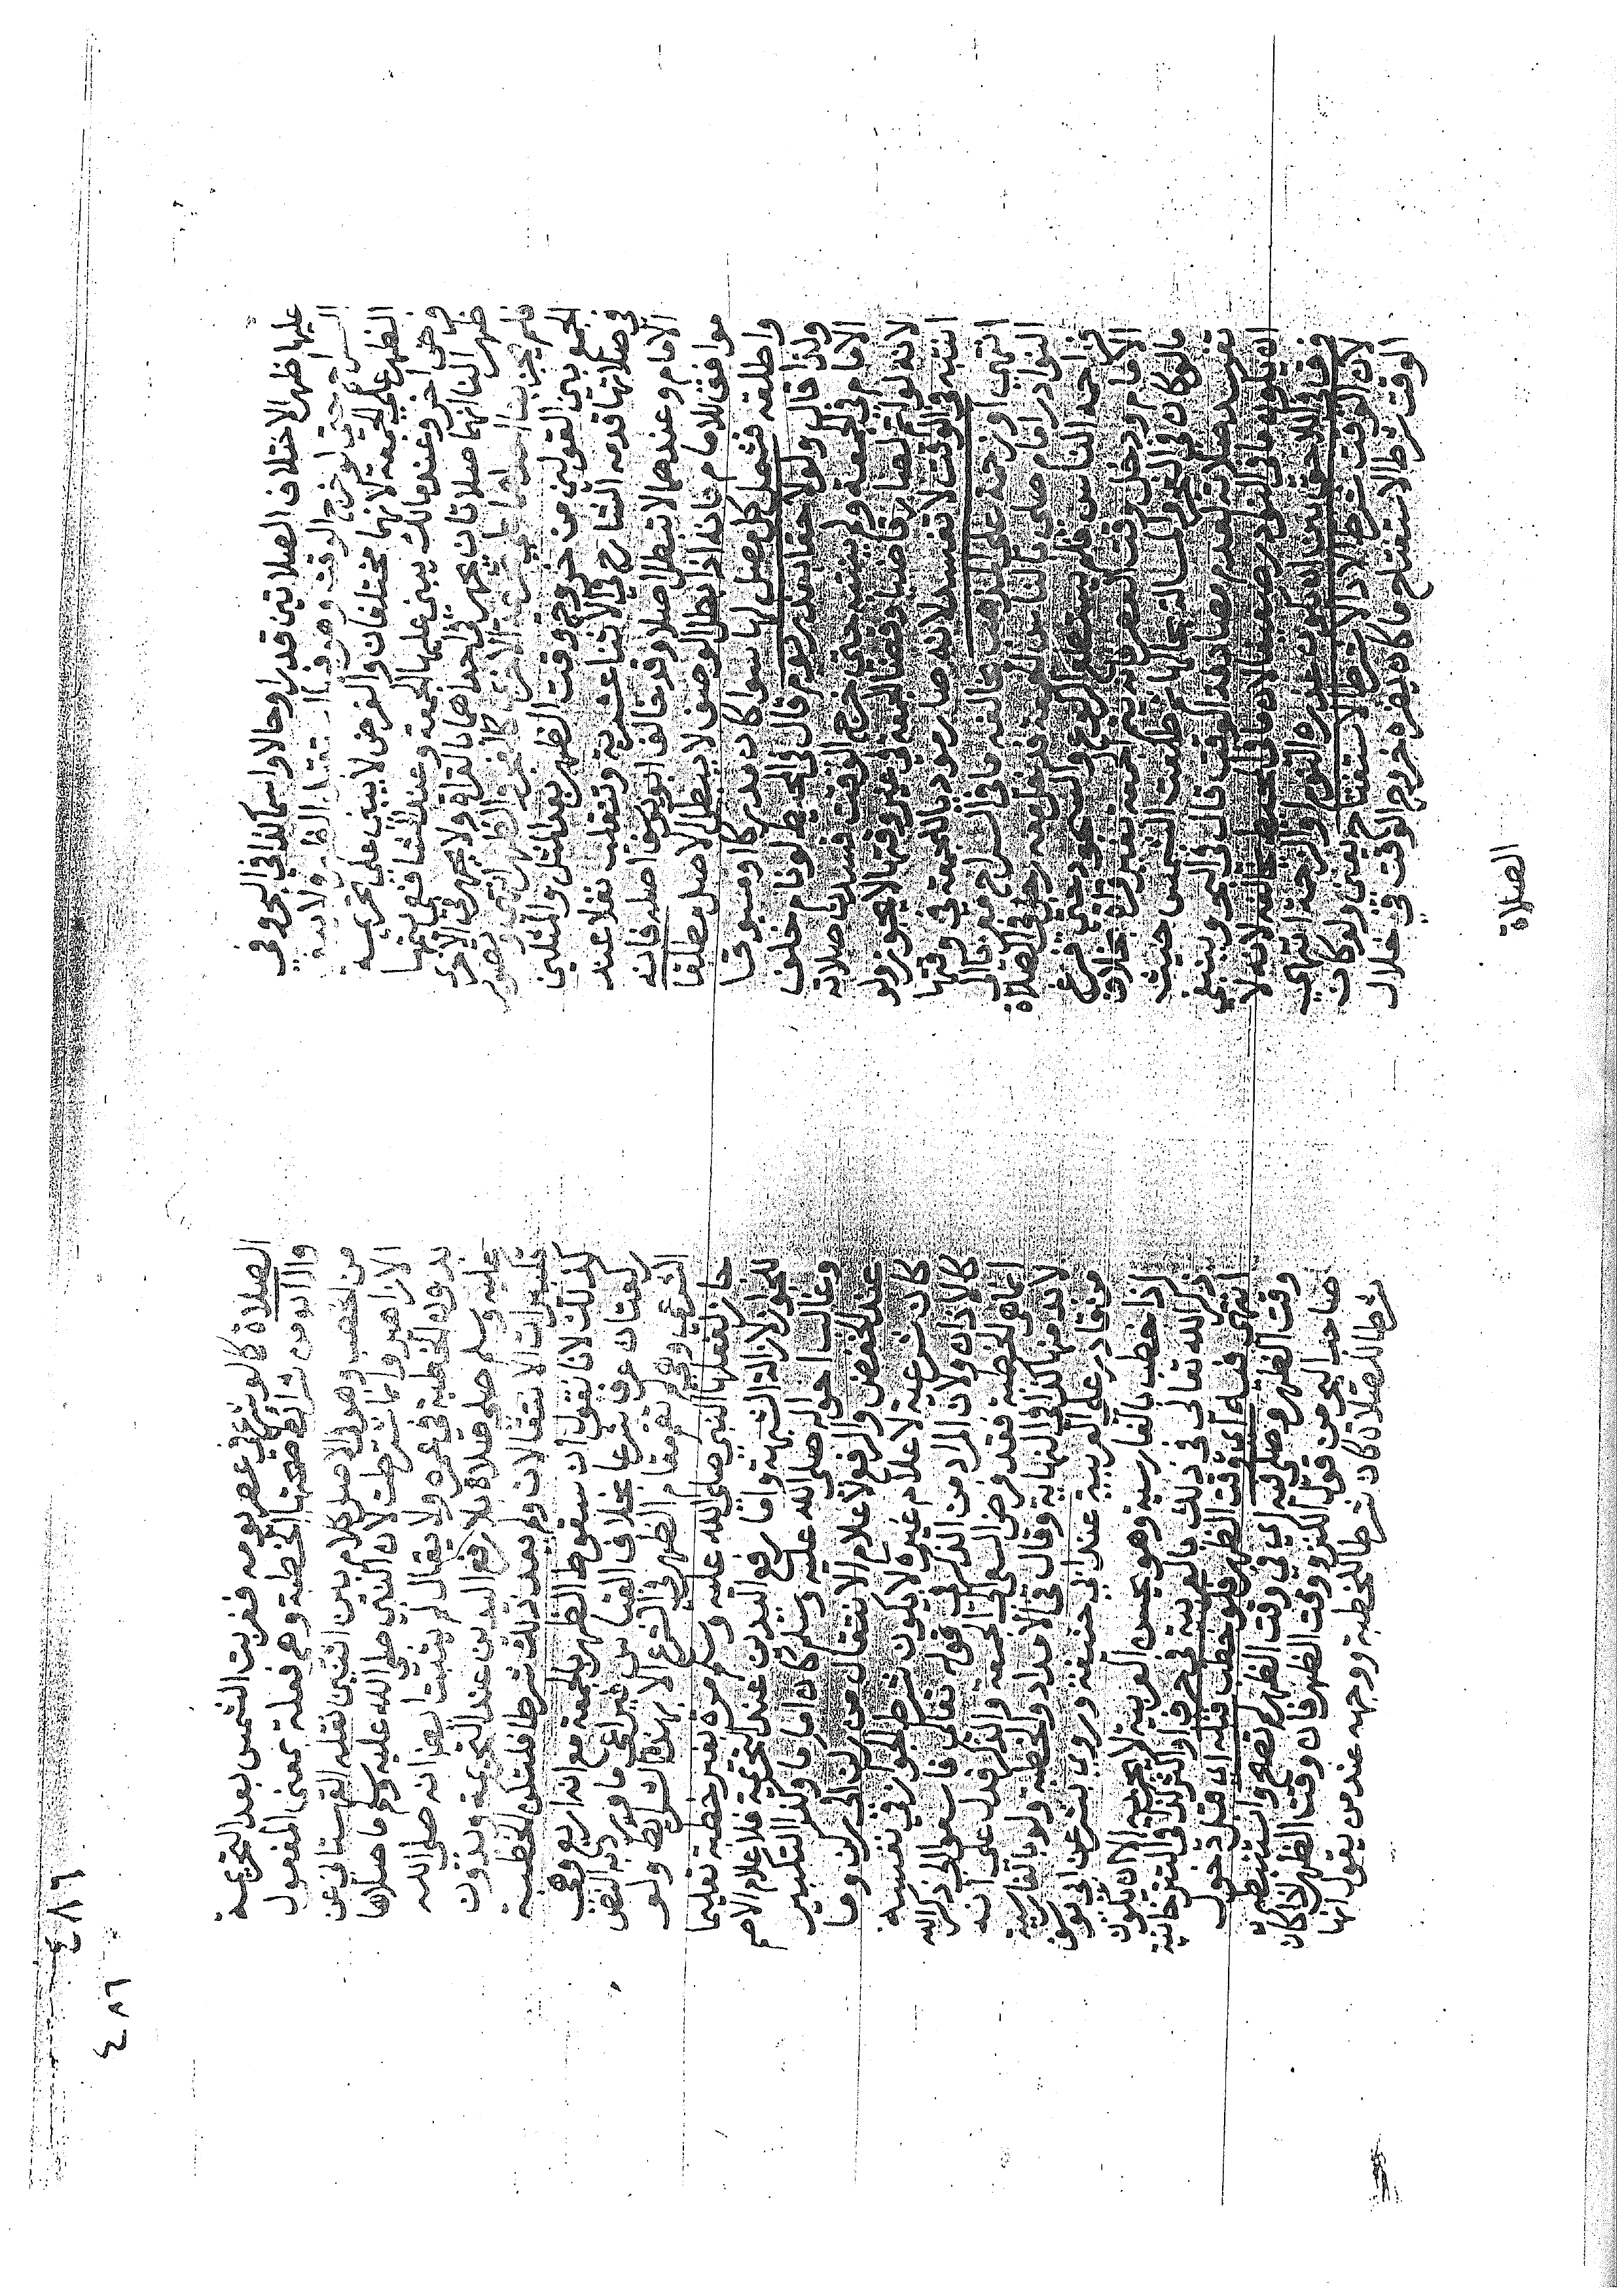 عليها ظهر الاختلاف الصلاتين قدرا وحالا واسما كذا في البحر وفي
الظهر على الجمعة لانهما مختلفان والفرض لا يبنى على تحريمة
فرض اخر وعند مالك يبنى عليها الجمعة وعند الشافعي يتمها
ظهرا لنا انهما صلاتان يجهر في احداهما بالقراة ولا يجهر في الاخرى
فلم يجز بناء احداهما على تحريمة الاخرى كالفجر والظهر
الجمع بين القولين من خروج وقت الظهر بعد المثل والمثلين
في صلاتها قدمه الشارح في الاثنا عشرية وتنقلب نفلا عند
الامام وعندهما لا تبطل اصلا وقد خالف ابو يوسف اصله فانه
موافق للامام في انه اذا بطل الوصف لا يبطل الاصل مطلقا
واطلقه فشمل كل مصل لها سوا كان مدركا او مسبوقا
ولذا قال ولو لاحقا بعذر نوم قال في المحيط لو نام خلف
الامام في الجمعة ولم ينتبه حتى خرج الوقت فسدت صلاته
لانه لو اتم لصار قاضيا وقضا الجمعة في غير وقتها لا يجوز ولو
انتبه في الوقت لا تفسد لانه صار موديا للجمعة في وقتها
انتهى او زحمة على المذهب خالفه ما في السراج من قال
النوادر امام صلى بالناس الجمعة فدخل معه رجل في الصلاة
فزاحمه الناس فلم يستطع الركوع والسجود حتى فرغ
الامام ودخل وقت العصر فانه يتم الجمعة بغير قراة بخلاف
مالو كان في الفجر والمسالة بحالها وطلعت الشمس حيث
تفسد صلاته لعدم مصادفة الوقت قال في البحر وينبغي
ان يكون ما في النوادر ضعيفا لان ما في المحيط يخالفه لانه لا
فرق في اللاحق بين ان يكون عذره النوم او الزحمة انتهى
لان الوقت شرط الادا لا شرط الافتتاح يعني ولو كان
الوقت شرط الافتتاح ما كان يضره خروج الوقت في خلال
الصلاة
الصلاة كالوشرع في عصر يومه فغربت الشمس بعد التحريمة
والثالث من شرائط صحتها الخطبة وهي فعلة بمعنى المفعول
من الخطب وهو في الاصل كلام بين اثنين نقله القهستاني عن
الازاهير وانما شرطت لان النبي صلى الله عليه وسلم ما صلاها
بدون الخطبة في عمره ولا يقال لم يثبت ايضا انه صلى الله
عليه وسلم صلى صلاة بلا رفع اليدين عند التحريمة وبدون
تكبيرات الانتقالات ولم يعد ذلك شرطا فلتكن الخطبة
كذلك لانا نقول ان سقوط الظهر بالجمعة مع انه اربع وهي
ركعتان عرف شرعا بخلاف القياس فيراعى ما ورد به النص
الشرعي وهو لم تقم مقام الظهر في الشرع الا بهذه الشرائط ولو
جاز لفعلها النبي صلى الله عليه وسلم مرة بغير خطبة تعليما
للجواز لازالة الشبهة واما رفع اليدين عند التحريمة فلا علام الاصم
وغالب احواله صلى الله عليه وسلم كان اماما وكذا التكبير
عند الخفض والرفع لاعلام الانتقال من ركن الى ركن وما
كان شرعية لاعلام غيره لا يكون شرط الجواز في نفسه
كالاذان ولان المراد من الذكر في قوله تعالى فاسعوا الى ذكر الله
انما هي الخطبة فقد فرض السعي الى الجمعة والذكر فدل على انه
لابد منها كذا في النهاية وقال في الامداد والخطبة ولو بالفارسية
من قادر على العربية عند ابي حنيفة وروى بشر عن ابي يوسف
اذا خطب بالفارسية وهو يحسن العربية لا يجزيه الا ان يكون
ذكر الله تعالى في ذلك بالعربية في حرف او اكثر كذا في التتر خانية
انتهى فيه اي وقت الظهر فلو خطب قبله اي قبل دخول
وقت الظهر وصلى فيه اي في وقت الظهر لم تصح واستنبطه
صاحب البحر من قول الكنز ووقت الظهر فان وقت الظهر اذا كان
شرطا للصلاة كان شرطا للخطبة ووجهه عند من يقول انها
٤٨٦
٤٨٦